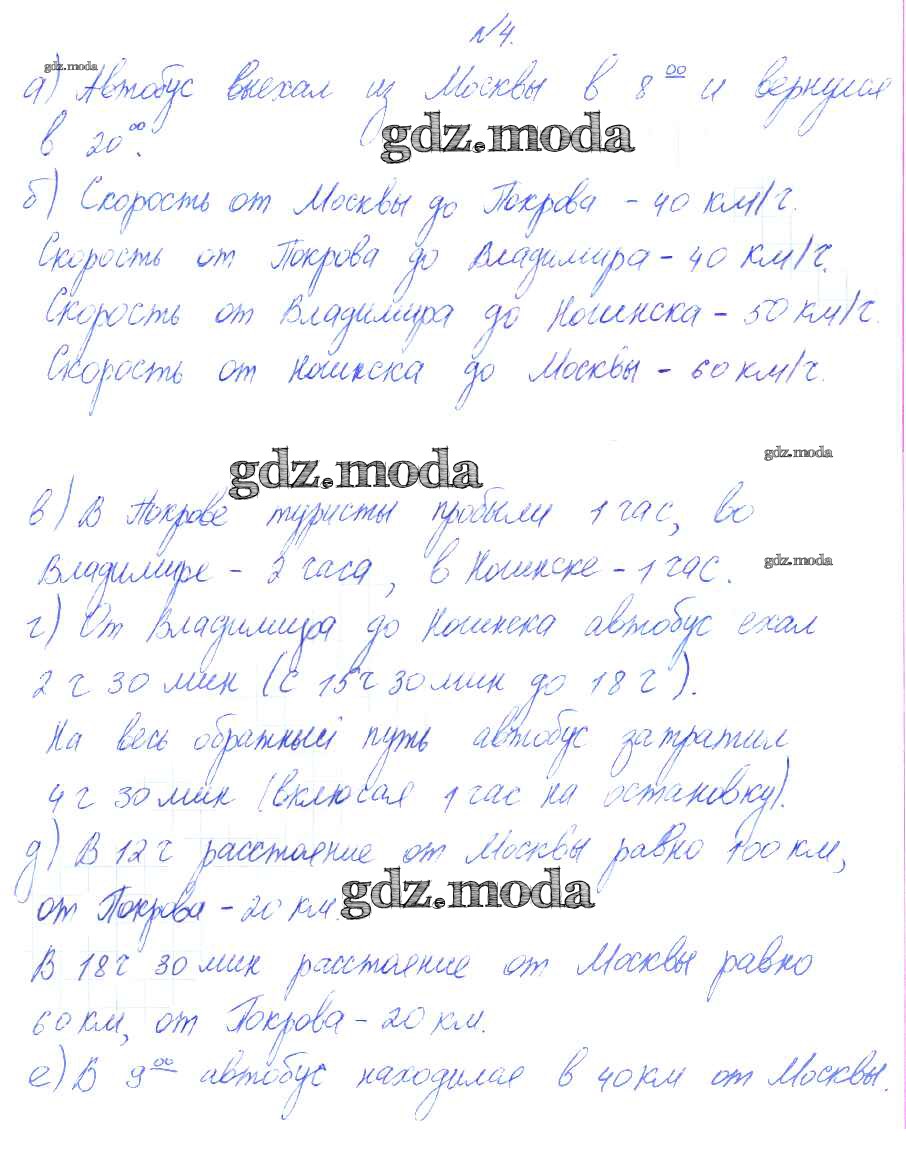 №4.
gdz.moda
а) Автобус выехал из Москвы в 8⁰⁰ и вернулся
в 20⁰⁰.
gdz.moda
б) Скорость от Москвы до Покрова - 40 км/ч.
Скорость от Покрова до Владимира - 40 км/ч.
Скорость от Владимира до Ногинска - 50 км/ч.
Скорость от Ногинска до Москвы - 60 км/ч.
gdz.moda
gdz.moda
в) В Покрове туристы пробыли 1 час, во
Владимире - 2 часа, в Ногинске - 1 час.
gdz.moda
г) От Владимира до Ногинска автобус ехал
2 ч 30 мин (с 15 ч 30 мин до 18 ч).
На весь обратный путь автобус затратил
4 ч 30 мин (включая 1 час на остановку).
д) В 12 ч расстояние от Москвы равно 100 км,
от Покрова - 20 км.
gdz.moda
В 18 ч 30 мин расстояние от Москвы равно
60 км, от Покрова - 20 км.
е) В 9⁰⁰ автобус находился в 40 км от Москвы.